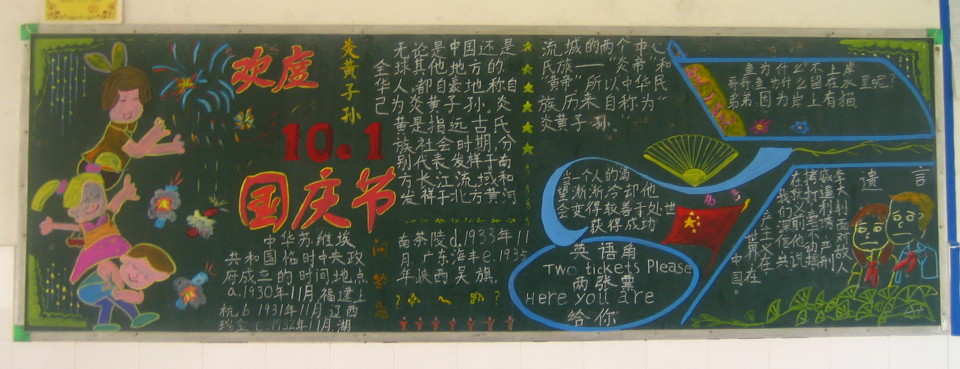 欢度
10.1
国庆节
炎黄子孙
无论是中国还是
全球其他地方的
华人,都自豪地称自
己为炎黄子孙.炎
黄是指远古氏
族社会时期,分
别代表发样于南
方长江流域和
发样于北方黄河
流域的两个中心
民族——"炎帝"和
"黄帝".所以中华民
族历来自称为"
炎黄子孙."
中华苏维埃
共和国临时中央政
府成立的时间地点
a.1930年11月福建上
杭.b 1931年11月江西
瑞金 c.1932年11月湖
南茶陵d.1933年11
月广东海丰e.1935
年陕西吴旗.
鱼为什么不上岸
哥哥鱼为什么留在水里呢?
弟弟 因为岸上有猫
当一个人的
渐渐冷却他
会变得较善于处世
获得成功
英语角
Two tickets Please
两张票
Here you are
给你
遗言
李大钊面对敌人
严刑